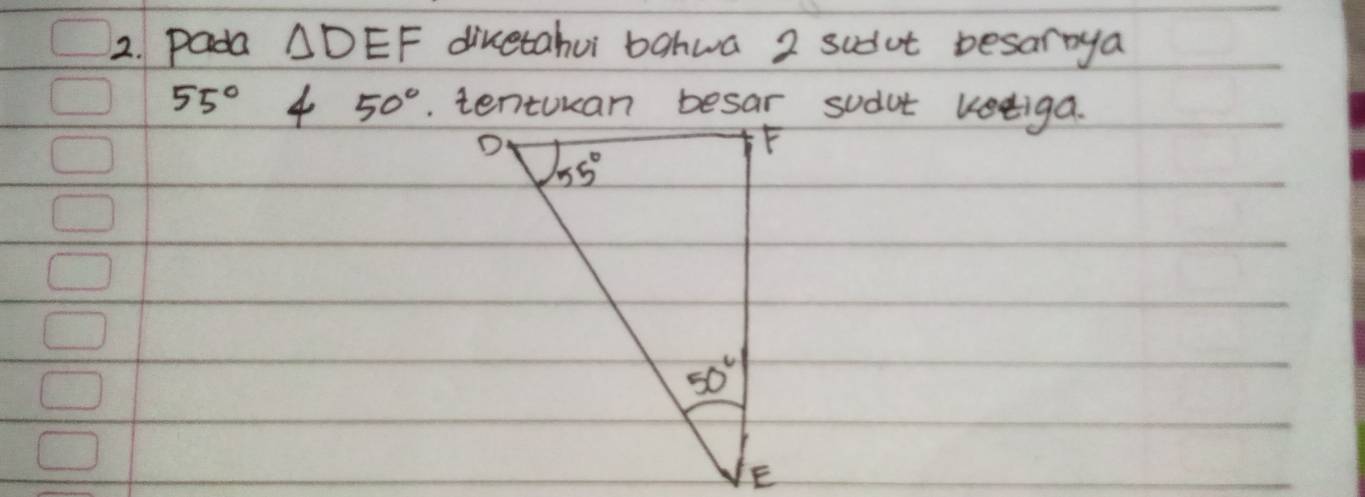 2. Pada ΔDEF diketahui bahwa 2 sudut besarnya
55° & 50°. tentukan besar sudut ketiga.
D F
55°
50°
E